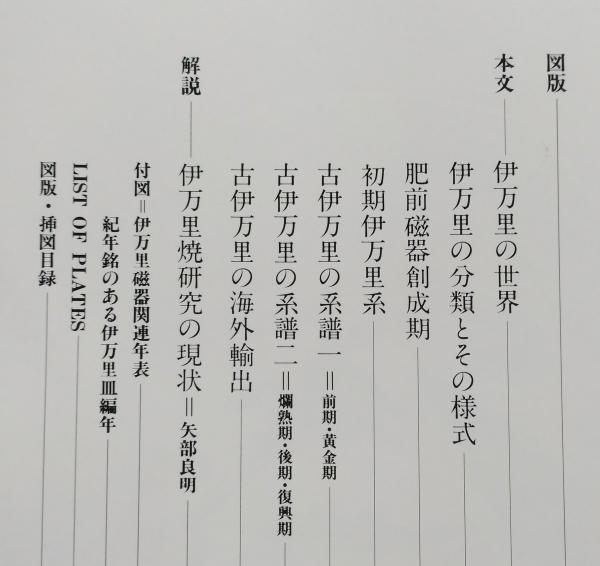 図版
本文 伊万里の世界
伊万里の分類とその様式
肥前磁器創成期
初期伊万里系
古伊万里の系譜一＝前期・黄金期
古伊万里の系譜二＝爛熟期・後期・復興期
古伊万里の海外輸出
解説 伊万里焼研究の現状＝矢部良明
付図＝伊万里磁器関連年表
紀年銘のある伊万里皿編年
LIST OF PLATES
図版・挿図目録